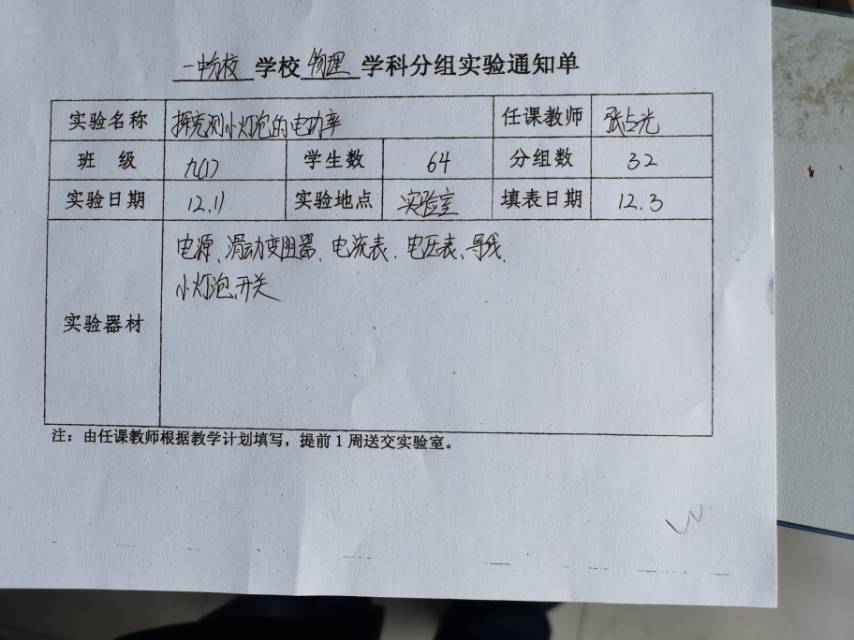 一中分校 学校 物理 学科分组实验通知单
实验名称 探究测小灯泡的电功率 任课教师 张占光
班 级 九(1) 学生数 64 分组数 32
实验日期 12.11 实验地点 实验室 填表日期 12.3
电源、滑动变阻器、电流表、电压表、导线、
小灯泡、开关
实验器材
注：由任课教师根据教学计划填写，提前1周送交实验室。